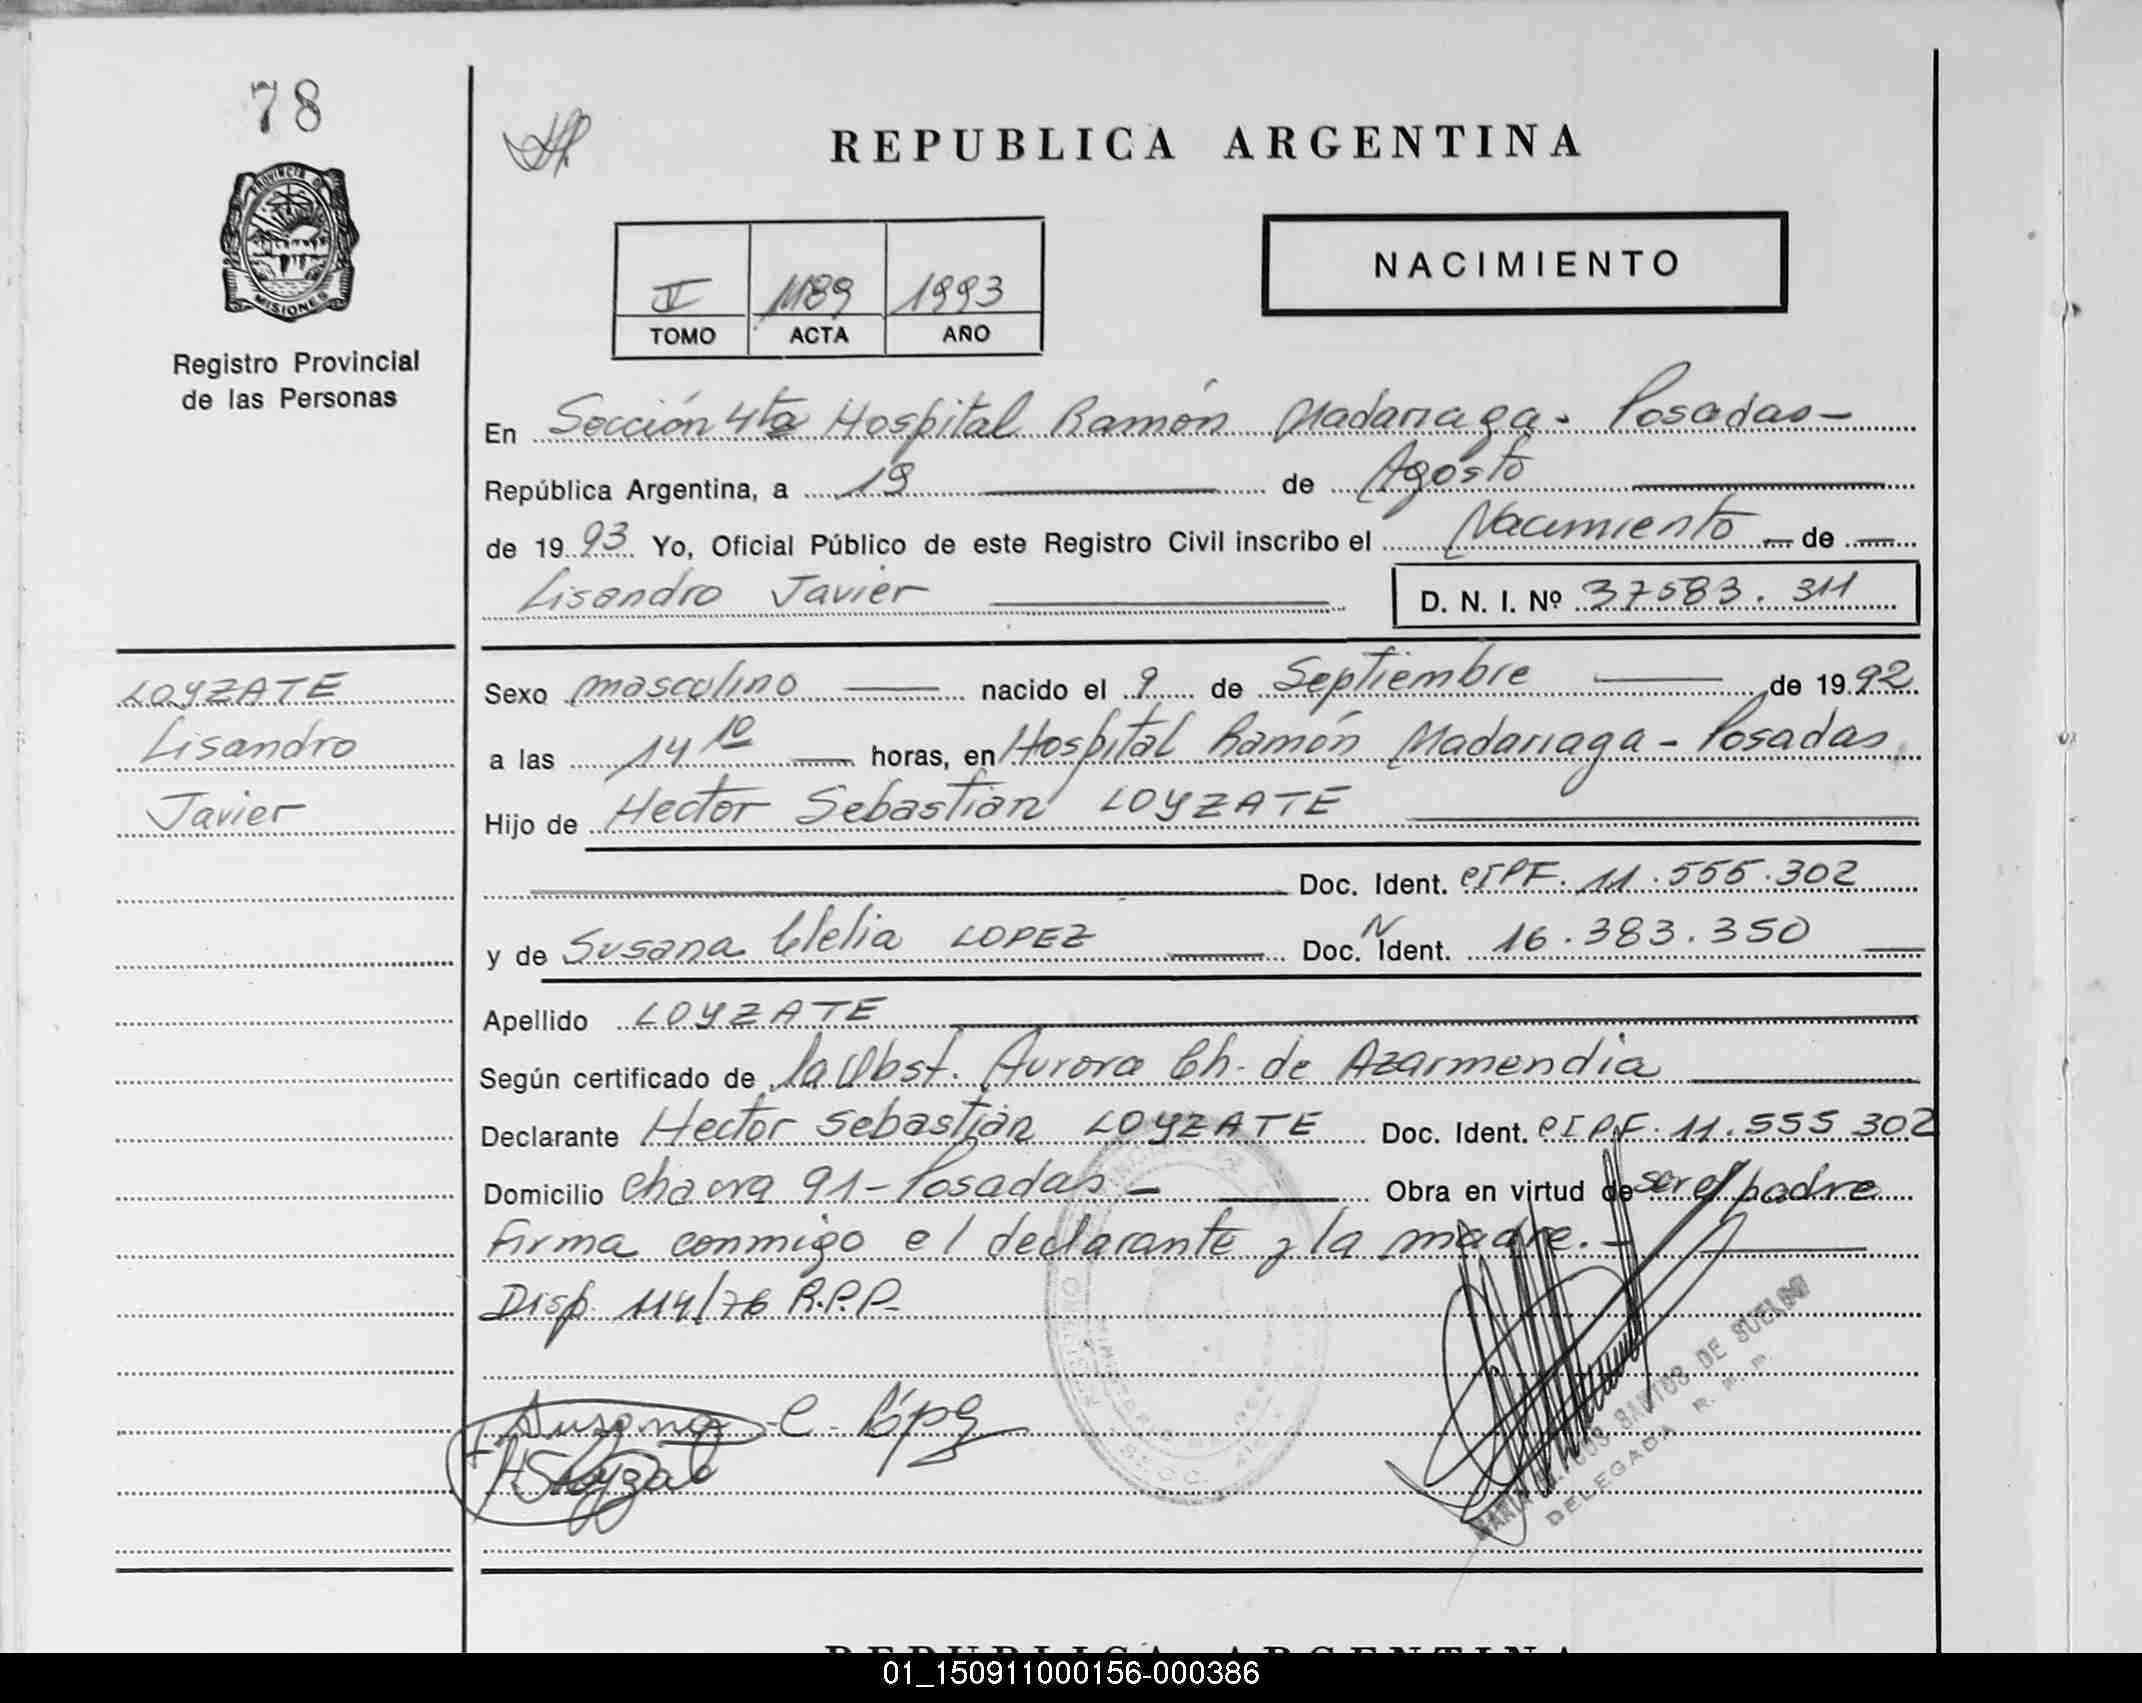 78
REPUBLICA ARGENTINA
PROVINCIA DE
MISIONES
Registro Provincial
de las Personas
NACIMIENTO
V 1189 1993
TOMO ACTA AÑO
En Sección 4ta Hospital Ramón Madariaga - Posadas -
República Argentina, a 19 de Agosto
de 1993 Yo, Oficial Público de este Registro Civil inscribo el Nacimiento - de -
Lisandro Javier D. N. I. Nº 37583.311
LOYZATE
Lisandro
Javier
Sexo masculino nacido el 9 de Septiembre de 1992.
a las 14 10 horas, en Hospital Ramón Madariaga - Posadas
Hijo de Hector Sebastian LOYZATE
Doc. Ident. CIPF. 11.555.302
y de Susana Clelia LOPEZ Doc. N Ident. 16.383.350
Apellido LOYZATE
Según certificado de la Obst. Aurora Ch. de Azarmendia
Declarante Hector Sebastian LOYZATE Doc. Ident. CIPF. 11.555.302
Domicilio Chacra 91 - Posadas - Obra en virtud de ser el padre
Firma conmigo el declarante y la madre. -
Disp. 114/76 R.P.P.
Susana C. López
SANTOS DE
DELEGADA
REPUBLICA ARGENTINA
01_150911000156-000386